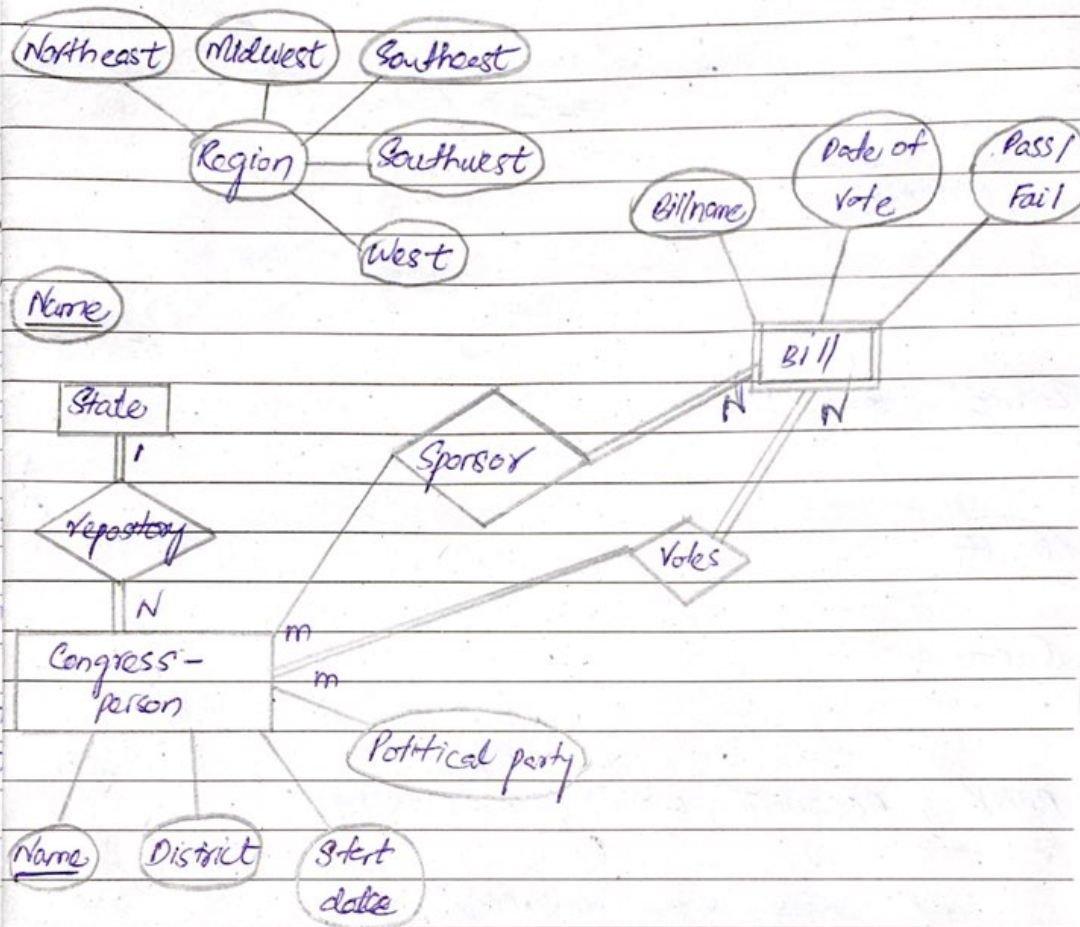 Northeast
Midwest
Southeast
Region
Southwest
West
Billname
Date of
Vote
Pass/
Fail
Name
State
1
repository
N
Bill
N
N
Sponsor
Votes
m
m
Congress-
person
Political party
Name
District
Start
date